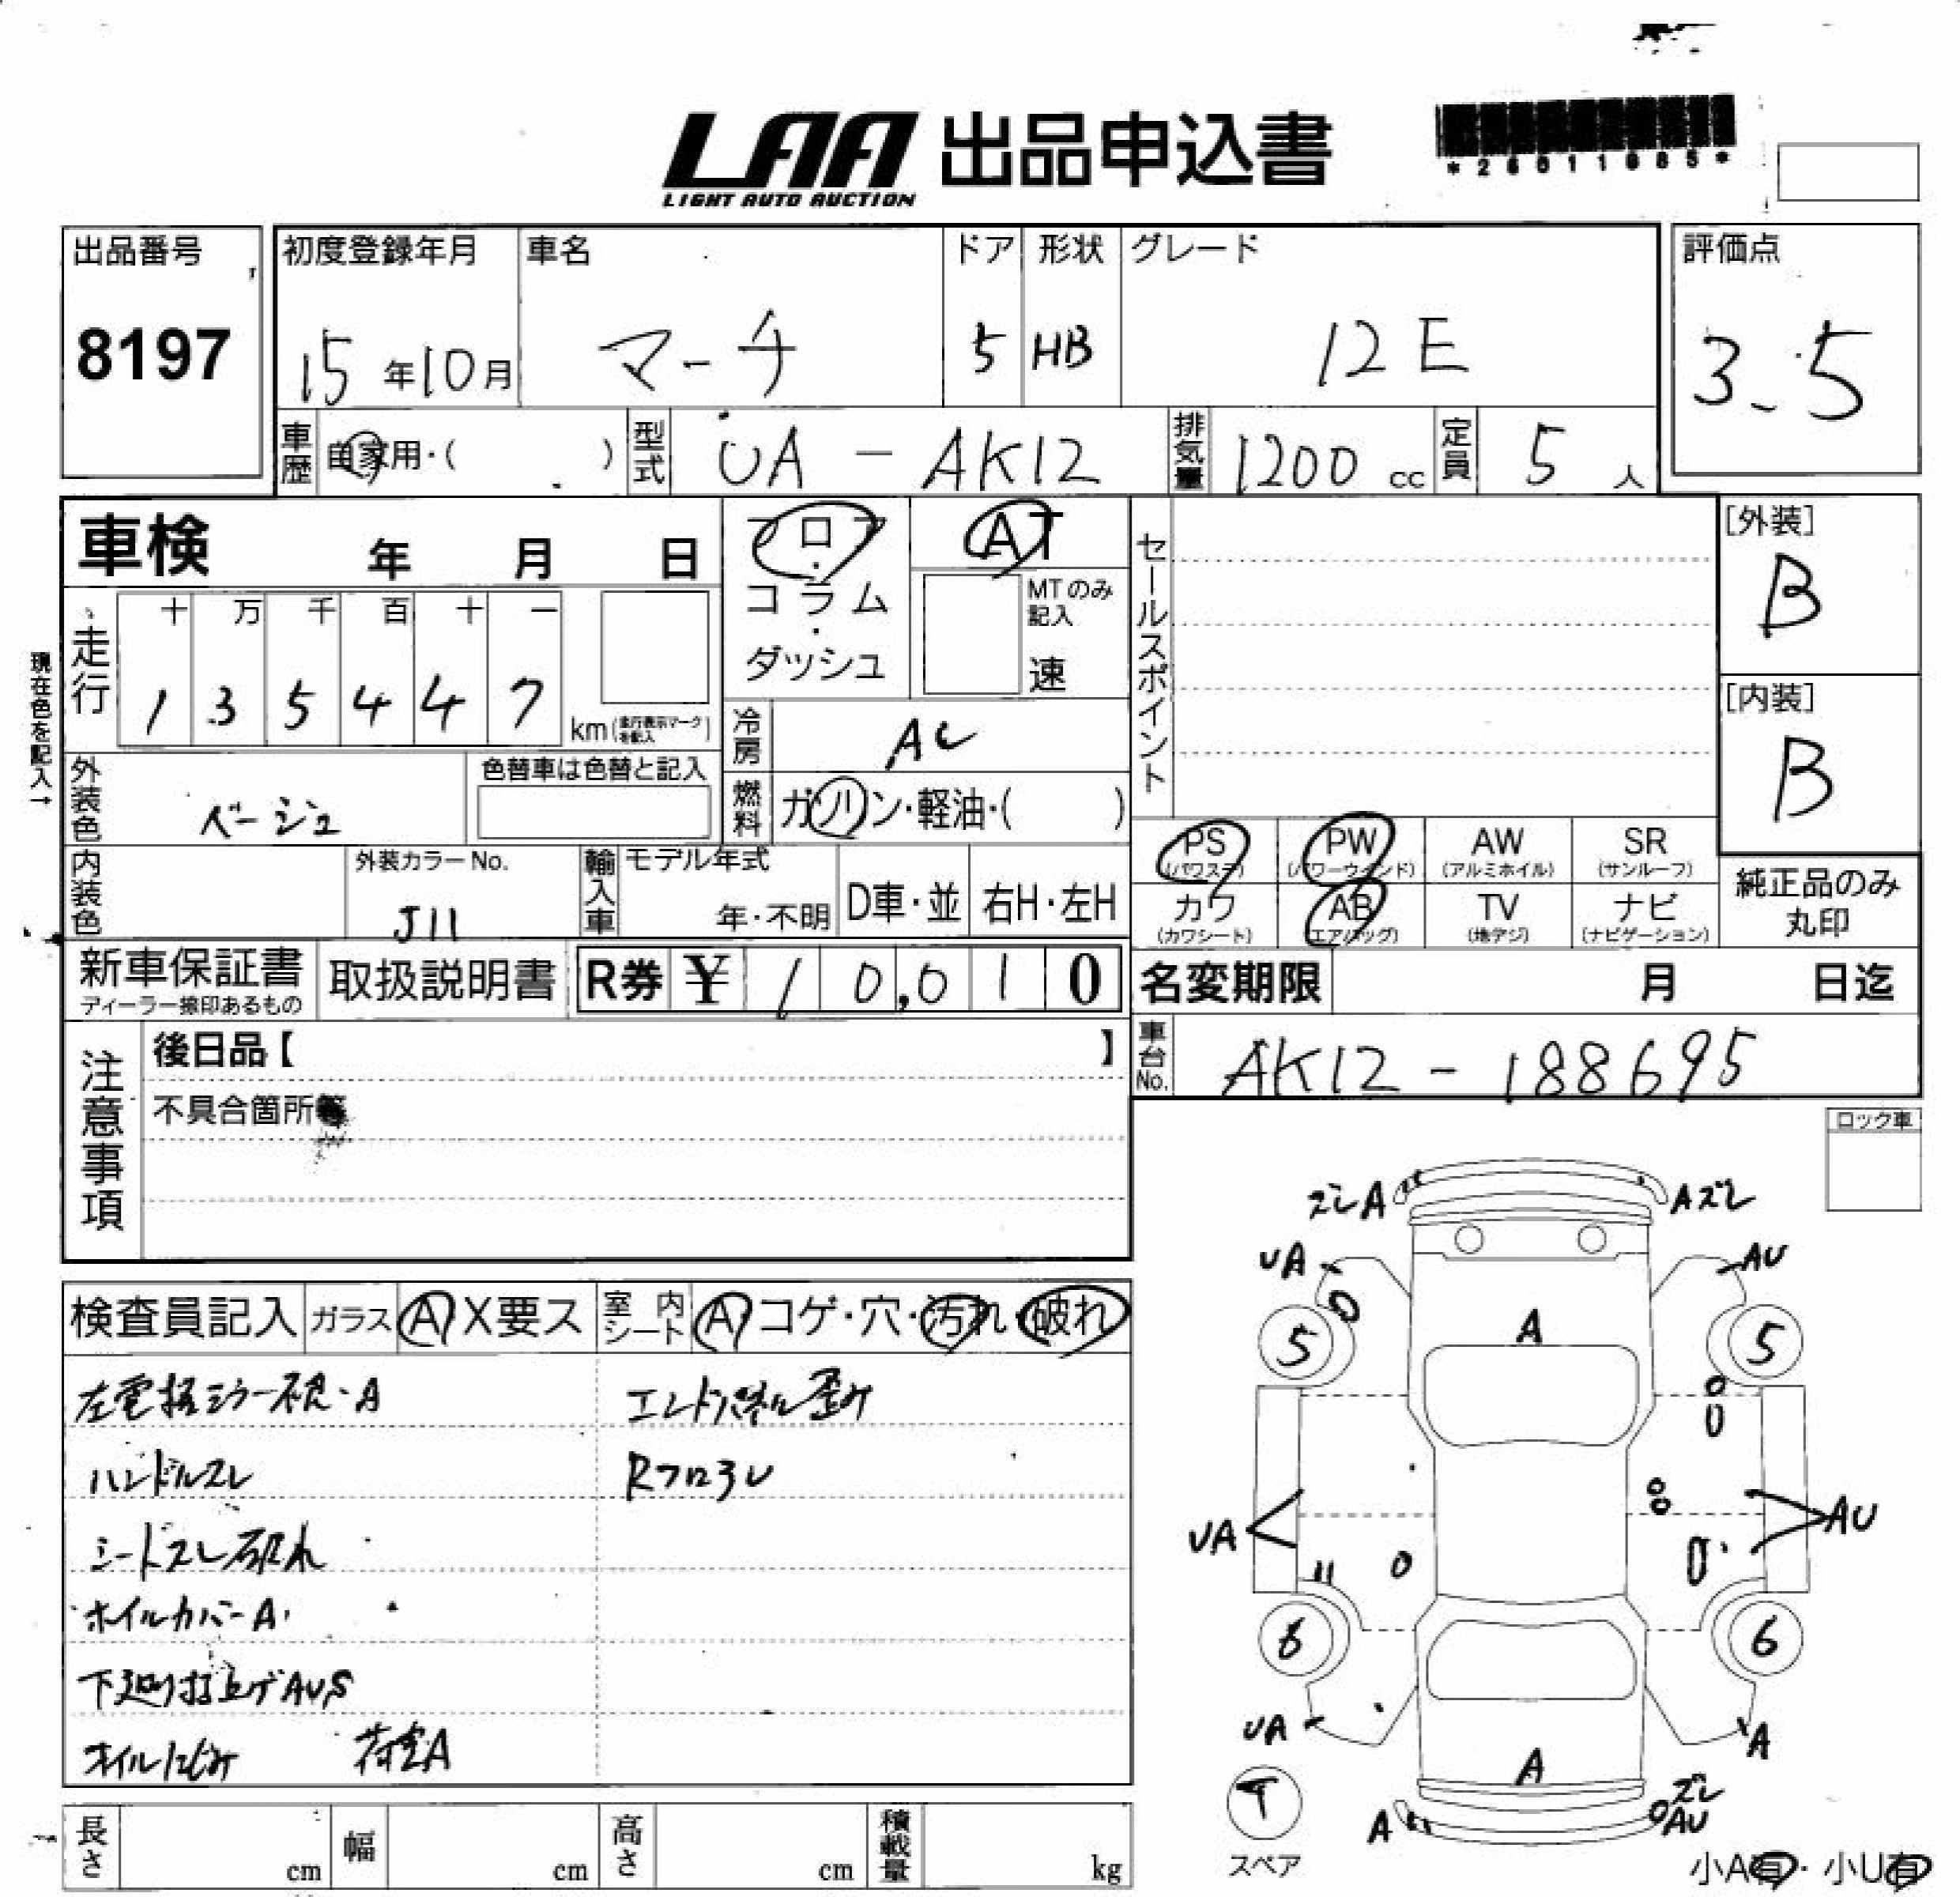 LAA 出品申込書
LIGHT AUTO AUCTION
出品番号 初度登録年月 車名 ドア 形状 グレード 評価点
8197 15年10月 マーチ 5 HB 12E 3.5
車歴 自家用・( ) 型式 UA - AK12 排気量 1200 cc 定員 5 人
車検 年 月 日 フロア AT セールスポイント [外装]
・ B
コラム MTのみ記入
・
ダッシュ 速
現在色を記入→
走行 十 万 千 百 十 一
1 3 5 4 4 7 km (走行表示マークを記入)
[内装]
B
冷房 AC
外装色 ベージュ 色替車は色替と記入
燃料 ガソリン・軽油・( )
PS PW AW SR
(パワステ) (パワーウインド) (アルミホイル) (サンルーフ)
カワ AB TV ナビ
(カワシート) (エアバッグ) (地デジ) (ナビゲーション)
純正品のみ
丸印
内装色 外装カラーNo. J11 輸入車 モデル年式 年・不明 D車・並 右H・左H
新車保証書 取扱説明書 R券 ¥ 10,010 名変期限 月 日迄
ディーラー捺印あるもの
注意事項 後日品【 】
車台No. AK12 - 188695
不具合箇所等
ロック車
検査員記入 ガラス A X要ス 室内シート A コゲ・穴・汚れ・破れ
左電格ミラー A
エンドパネル歪み
ハンドルスレ
Rフロア
シートスレ破れ
ホイルカバーA
下廻り打上げAUS
オイルにじみ 荷室A
ズレA Aズレ
UA AU
5 A 5
UA AU
6 6
UA A
A
T ズレ
A AU
スペア
小A有・小U有
長さ cm 幅 cm 高さ cm 積載量 kg